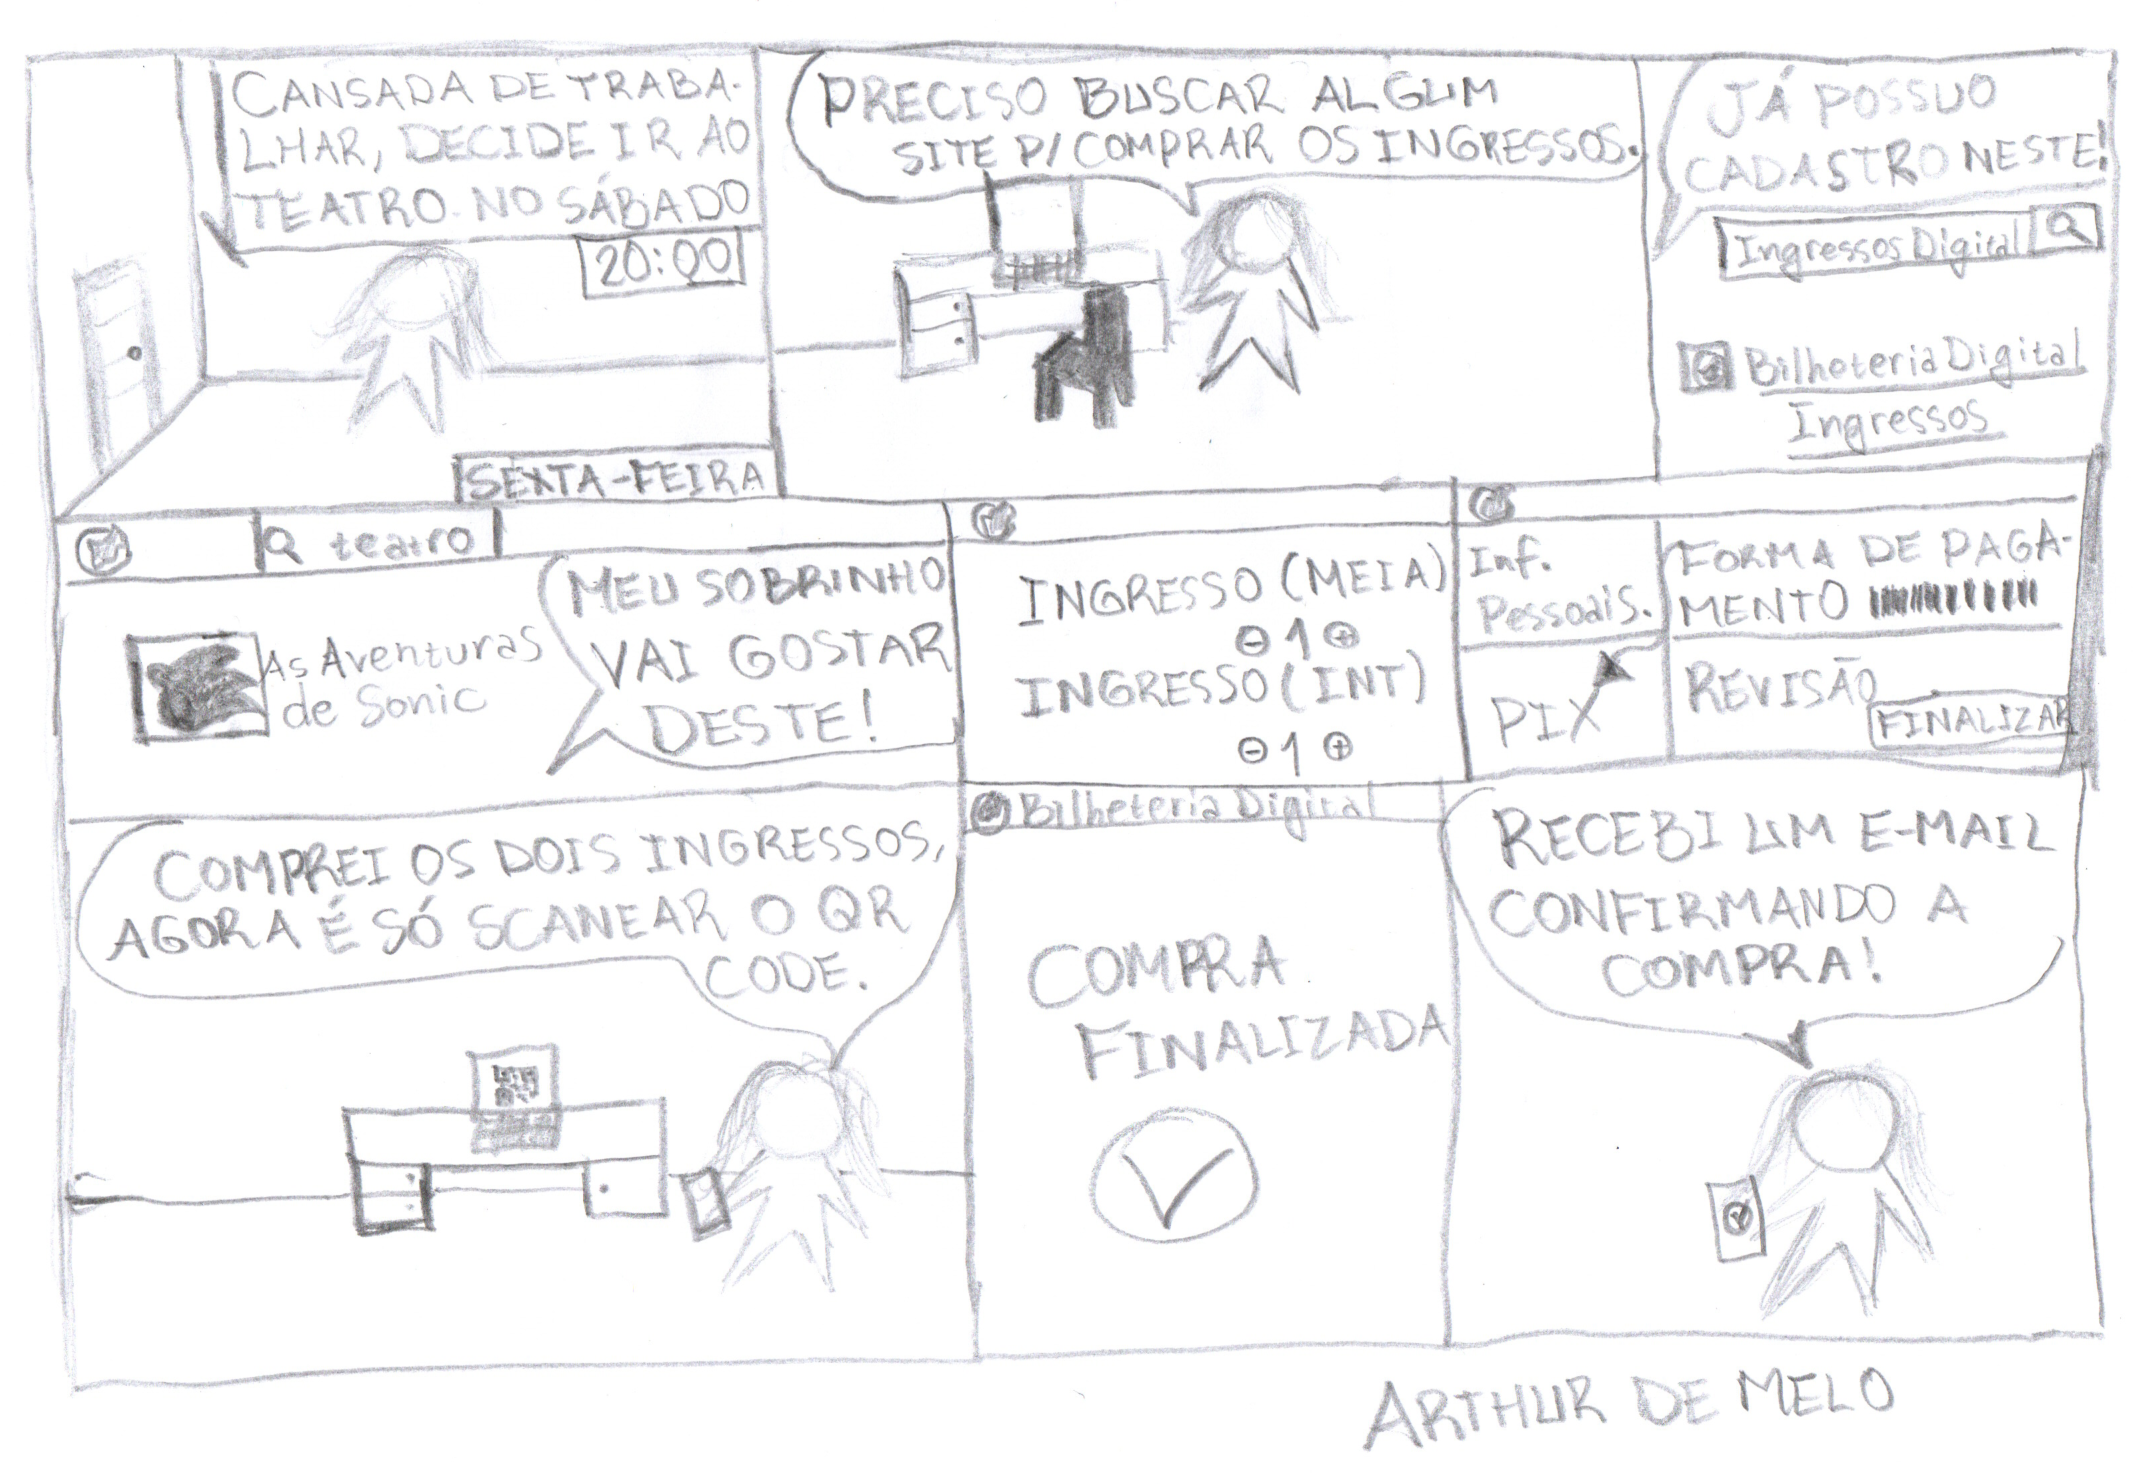 CANSADA DE TRABA-
LHAR, DECIDE IR AO
TEATRO NO SÁBADO
20:00
SEXTA-FEIRA
PRECISO BUSCAR ALGUM
SITE P/ COMPRAR OS INGRESSOS.
JÁ POSSUO
CADASTRO NESTE!
Ingressos Digital
Bilheteria Digital
Ingressos
teatro
MEU SOBRINHO
VAI GOSTAR
DESTE!
As Aventuras
de Sonic
INGRESSO (MEIA)
⊖ 1 ⊕
INGRESSO (INT)
⊖ 1 ⊕
Inf.
Pessoais.
FORMA DE PAGA-
MENTO
PIX
REVISÃO
FINALIZAR
COMPREI OS DOIS INGRESSOS,
AGORA É SÓ SCANEAR O QR
CODE.
Bilheteria Digital
COMPRA
FINALIZADA
RECEBI UM E-MAIL
CONFIRMANDO A
COMPRA!
ARTHUR DE MELO